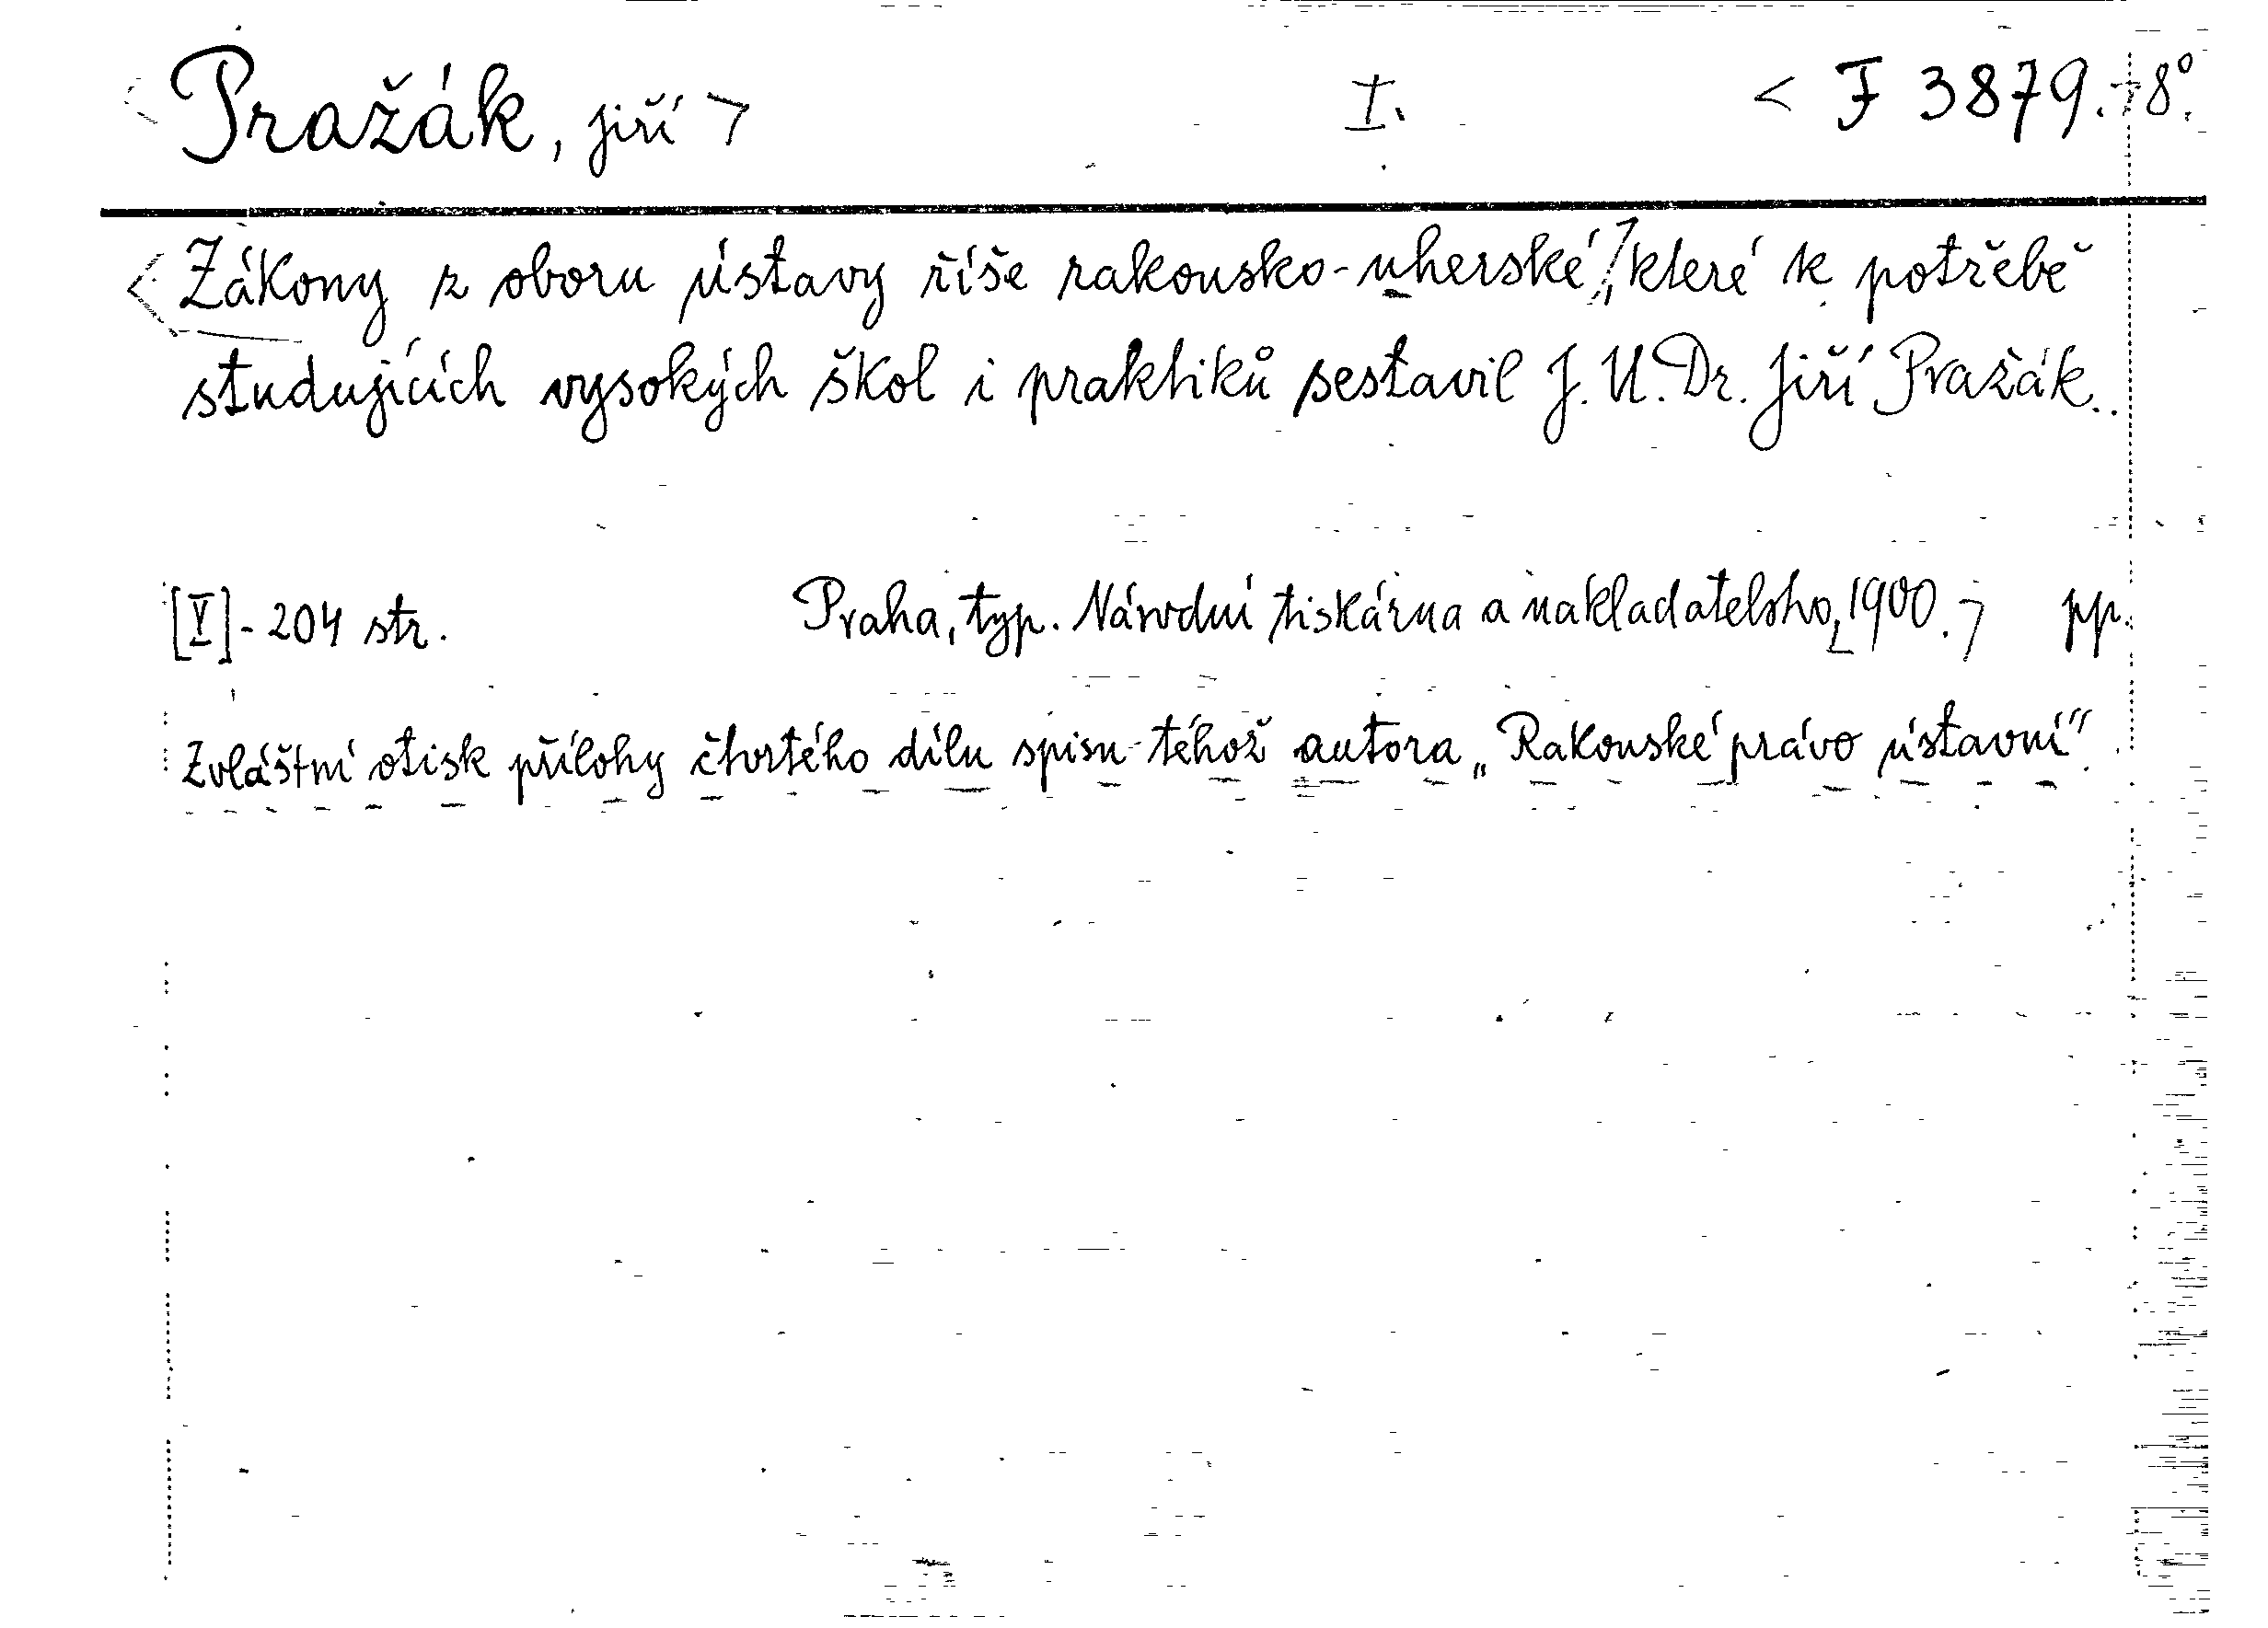 <Pražák, Jiří> I. <F 3879.+8°.
<Zákony z oboru ústavy říše rakousko-uherské>, které k potřebě
studujících vysokých škol i praktiků sestavil J. U. Dr. Jiří Pražák..
[V]-204 str. Praha, typ. Národní tiskárna a nakladatelstvo, 1900.> pp.
Zvláštní otisk přílohy čtvrtého dílu spisu téhož autora „Rakouské právo ústavní".